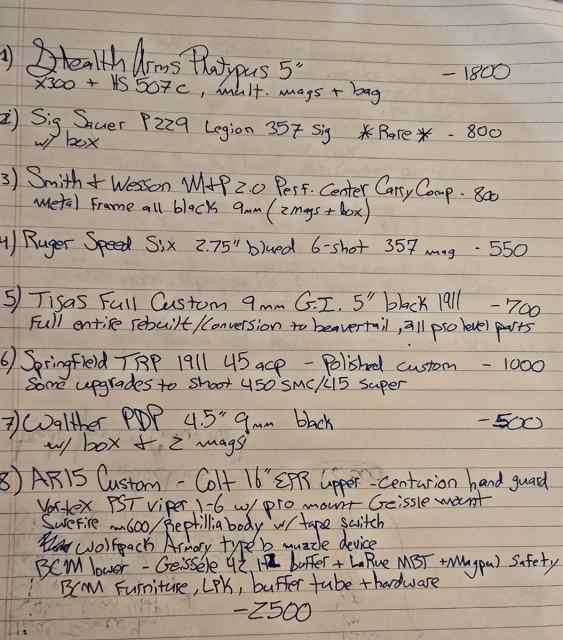 1) Stealth Arms Platypus 5" - 1800
X300 + HS 507c, mult. mags + bag
2) Sig Sauer P229 Legion 357 Sig *Rare* - 800
w/ box
3) Smith + Wesson M+P 2.0 Perf. Center Carry Comp - 800
Metal Frame all black 9mm (2mags + box)
4) Ruger Speed Six 2.75" blued 6-shot 357 mag - 550
5) Tisas Full Custom 9mm G.I. 5" black 1911 - 700
Full entire rebuilt/conversion to beavertail, all pro level parts
6) Springfield TRP 1911 45 acp - Polished custom - 1000
Some upgrades to shoot 450 SMC/45 super
7) Walther PDP 4.5" 9mm black - 500
w/ box + 2 mags
8) AR15 Custom - Colt 16" EPR upper - Centurion hand guard
Vortex PST viper 1-6 w/ pro mount Geissle mount
Surefire m600/Reptillia body w/ tape switch
Wolfpack Armory type b muzzle device
BCM lower - Geissele 42 H2 buffer + LaRue MBT + Magpul Safety
BCM Furniture, LPK, buffer tube + hardware
- 2500